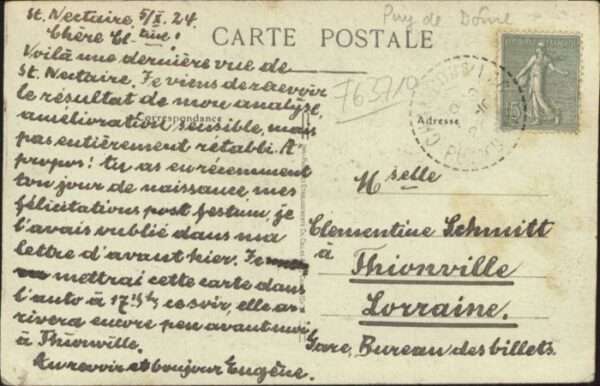 St. Nectaire, 5/X. 24.
Chère Cl.tine!
Voilà une dernière vue de
St. Nectaire. Je viens de ravoir
le résultat de mon analyse,
amélioration sensible, mais
pas entièrement rétabli. A
propos! tu as eu récemment
ton jour de naissance mes
félicitations post festum, je
l'avais oublié dans ma
lettre d'avant hier. Je
mettrai cette carte dans
l'auto à 17.15h ce soir, elle ar-
rivera encore peu avant moi
à Thionville.
Au revoir et bonjour Eugène.
Puy de Dôme
CARTE POSTALE
Correspondance
Adresse
Mselle
Clementine Schmitt
à
Thionville
Lorraine.
Gare, Bureau des billets.